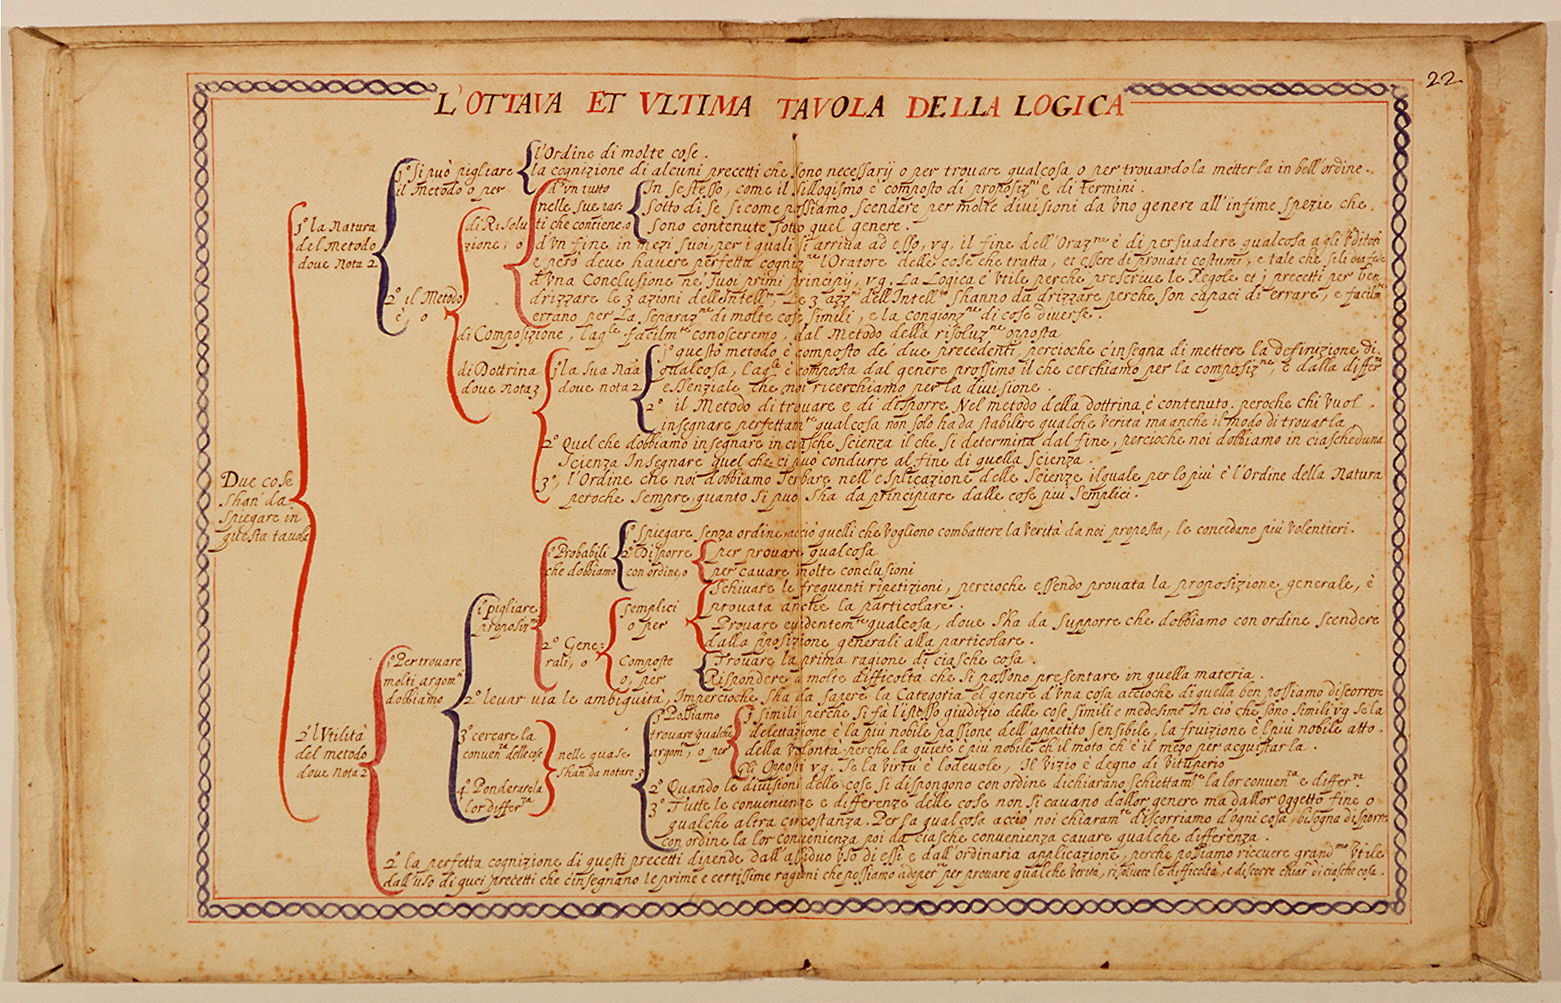 22
L'OTTAVA ET VLTIMA TAVOLA DELLA LOGICA
Due cose
shan' da
spiegare in
questa tavola
1.º la Natura
del metodo
dove Nota 2
1.º si può pigliare
il metodo o per
l'Ordine di molte cose.
la cognizione di alcuni precetti che sono necessarij o per trovare qualcosa o per trovandola metterla in bell'ordine.
2.º il Metodo
è, o
di Risolu
zione, o
d'vn tutto
nelle sue par:
ti che contiene, o
In se stesso, come il sillogismo è composto di proposiz.ni e di Termini.
sotto di se si come possiamo scendere per molte divisioni da vno genere all'infime spezie che
sono contenute sotto quel genere.
d'vn fine in mezi suoi, per i quali si arriva ad esso, vg. il fine dell'Oraz.ne è di persuadere qualcosa agli Vditori
e però deve havere perfetta cogniz.ne l'Oratore delle cose che tratta, et essere di provati costumi, e tale che si li dia fede
d'vna Conclusione ne' suoi primi principij, vg. La Logica è vtile perche prescrive le Regole et i precetti per ben
drizzare le 3 azioni dell'Intell.to Le 3 azz.ni dell'Intell.to shanno da drizzare perche son capaci di errare, e facilm.te
errano per la separaz.ne di molte cose simili, e la congionz.ne di cose diverse.
di Composizione, laq.le facilm.te conosceremo, dal Metodo della risoluz.ne opposta
di Dottrina
dove nota 3
1.º la sua Naã
dove nota 2
1.º questo metodo è composto de' due precedenti, percioche c'insegna di mettere la definizione di
qualcosa, laq.le è composta dal genere prossimo il che cerchiamo per la composiz.ne, e dalla differ.za
essenziale che noi ricerchiamo per la divisione.
2.º il Metodo di trovare e di disporre Nel metodo della dottrina è contenuto, peroche chi vuol
insegnare perfettam.te qualcosa non solo ha da stabilire qualche verità ma anche il modo di trovarla
2.º Quel che dobbiamo insegnare in ciasche scienza il che si determina dal fine, percioche noi dobbiamo in ciascheduna
Scienza Insegnare quel che ci può condurre al fine di quella scienza.
3.º l'Ordine che noi dobbiamo serbare nell'esplicazione delle Scienze ilquale per lo più è l'Ordine della Natura
peroche sempre quanto si può s'ha da principiare dalle cose più semplici.
2.º l'Vtilità
del metodo
dove nota 2
1.º Per trovare
molti argom.ti
dobbiamo
1.º pigliare
proposiz.ni
1.º Probabili
che dobbiamo
1.º spiegare senza ordine acciò quelli che vogliono combattere la verità da noi proposta, le concedano più volentieri.
2.º Disporre
con ordine, o
per provare qualcosa
per cavare molte conclusioni
2.º Gene:
rali, o
semplici
o per
Schivare le frequenti ripetizioni, percioche essendo provata la proposizione generale, è
provata anche la particolare.
Provare evidentem.te qualcosa, dove s'ha da supporre che dobbiamo con ordine scendere
dalla pposizione generali alla particolare.
Composte
o, per
Trovare la prima ragione di ciasche cosa.
Rispondere a molte difficoltà che si possono presentare in quella materia.
2.º levar via le ambiguità, Impercioche s'ha da sapere la Categoria e'l genere d'vna cosa accioche di quella ben possiamo discorrere
3.º cercare la
conven.za delle cose
4.º Ponderare la
lor differ.za
nelle quase
shan da notare 3
1.º Possiamo
trovare qualche
argom.to, o per
i simili perche si fà l'istesso giudizio delle cose simili e medesime In ciò che sono simili vg se la
delettazione è la più nobile passione dell'appetito sensibile, la fruizione è l più nobile atto
della volontà perche la quiete è più nobile ch'il moto ch'è il mezo per acquistarla.
gli Opposti vg. Se la virtù è lodevole, Il vizio è degno di vituperio
2.º Quando le divisioni delle cose si dispongono con ordine dichiarano schiettam.te la lor conven.za e differ.za
3.º Tutte le convenienze e differenze delle cose non si cavano dal lor genere ma dal lor Oggetto fine o
qualche altra circostanza. Per sa qualcosa acciò noi chiaram.te discorriamo d'ogni cosa, bisogna disporre
con ordine la lor convenienza poi da ciasche convenienza cavare qualche differenza.
2.º la perfetta cognizione di questi precetti dipende dall'assiduo vso di essi e dall'ordinaria applicazione, perche possiamo ricevere grand.mo Vtile
dall'uso di quei precetti che c'insegnano le prime e certissime ragioni che possiamo adoper.re per provare qualche verità, risolvere le difficoltà, e discorre chiar.te di ciasche cosa.